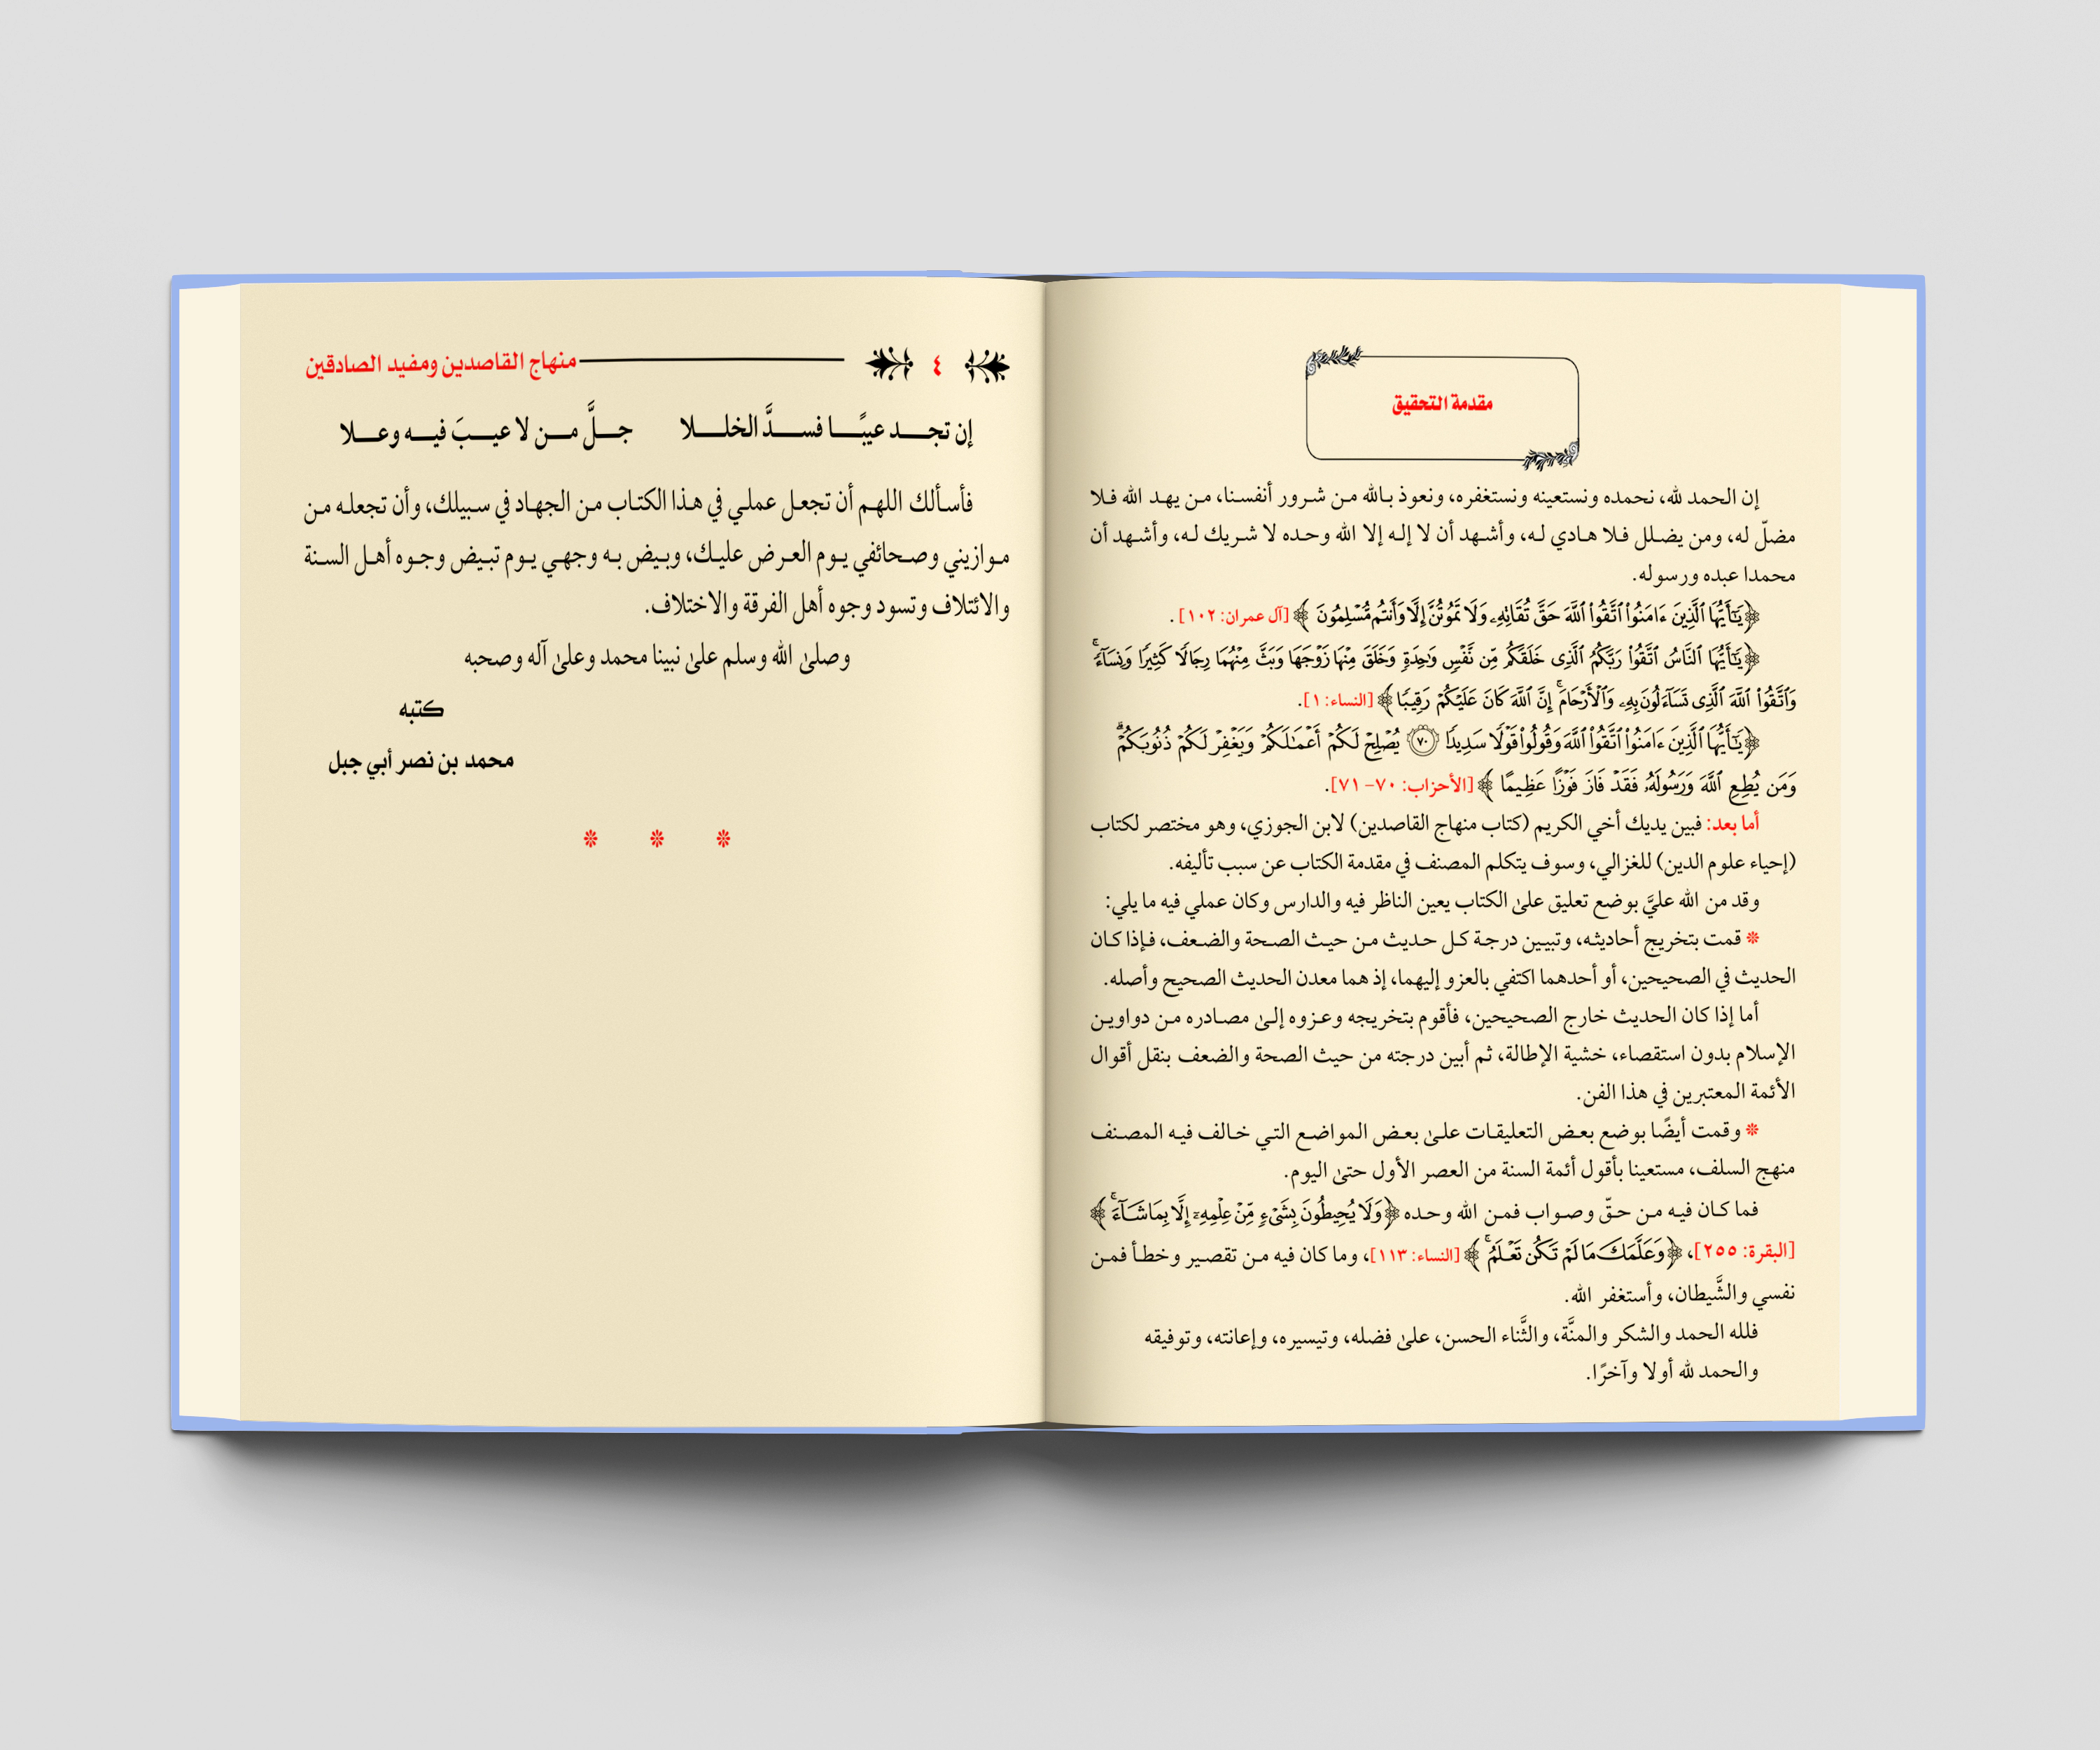 مقدمة التحقيق
إن الحمد لله، نحمده ونستعينه ونستغفره، ونعوذ بالله من شرور أنفسنا، من يهد الله فلا
مضلّ له، ومن يضلل فلا هادي له، وأشهد أن لا إله إلا الله وحده لا شريك له، وأشهد أن
محمدا عبده ورسوله.
﴿يَٰٓأَيُّهَا ٱلَّذِينَ ءَامَنُواْ ٱتَّقُواْ ٱللَّهَ حَقَّ تُقَاتِهِۦ وَلَا تَمُوتُنَّ إِلَّا وَأَنتُم مُّسۡلِمُونَ ﴾ [آل عمران: ١٠٢] .
﴿يَٰٓأَيُّهَا ٱلنَّاسُ ٱتَّقُواْ رَبَّكُمُ ٱلَّذِى خَلَقَكُم مِّن نَّفۡسٖ وَٰحِدَةٖ وَخَلَقَ مِنۡهَا زَوۡجَهَا وَبَثَّ مِنۡهُمَا رِجَالٗا كَثِيرٗا وَنِسَآءٗۚ
وَٱتَّقُواْ ٱللَّهَ ٱلَّذِى تَسَآءَلُونَ بِهِۦ وَٱلۡأَرۡحَامَۚ إِنَّ ٱللَّهَ كَانَ عَلَيۡكُمۡ رَقِيبٗا ﴾ [النساء: ١].
﴿يَٰٓأَيُّهَا ٱلَّذِينَ ءَامَنُواْ ٱتَّقُواْ ٱللَّهَ وَقُولُواْ قَوۡلٗا سَدِيدٗا ٧٠ يُصۡلِحۡ لَكُمۡ أَعۡمَٰلَكُمۡ وَيَغۡفِرۡ لَكُمۡ ذُنُوبَكُمۡۗ
وَمَن يُطِعِ ٱللَّهَ وَرَسُولَهُۥ فَقَدۡ فَازَ فَوۡزًا عَظِيمًا ﴾ [الأحزاب: ٧٠- ٧١].
أما بعد: فبين يديك أخي الكريم (كتاب منهاج القاصدين) لابن الجوزي، وهو مختصر لكتاب
(إحياء علوم الدين) للغزالي، وسوف يتكلم المصنف في مقدمة الكتاب عن سبب تأليفه.
وقد من الله عليَّ بوضع تعليق علىٰ الكتاب يعين الناظر فيه والدارس وكان عملي فيه ما يلي:
❊ قمت بتخريج أحاديثه، وتبيين درجة كل حديث من حيث الصحة والضعف، فإذا كان
الحديث في الصحيحين، أو أحدهما اكتفي بالعزو إليهما، إذ هما معدن الحديث الصحيح وأصله.
أما إذا كان الحديث خارج الصحيحين، فأقوم بتخريجه وعزوه إلىٰ مصادره من دواوين
الإسلام بدون استقصاء، خشية الإطالة، ثم أبين درجته من حيث الصحة والضعف بنقل أقوال
الأئمة المعتبرين في هذا الفن.
❊ وقمت أيضًا بوضع بعض التعليقات علىٰ بعض المواضع التي خالف فيه المصنف
منهج السلف، مستعينا بأقول أئمة السنة من العصر الأول حتىٰ اليوم.
فما كان فيه من حقّ وصواب فمن الله وحده ﴿وَلَا يُحِيطُونَ بِشَىۡءٖ مِّنۡ عِلۡمِهِۦٓ إِلَّا بِمَا شَآءَۚ ﴾
[البقرة: ٢٥٥]، ﴿وَعَلَّمَكَ مَا لَمۡ تَكُن تَعۡلَمُۚ ﴾ [النساء: ١١٣]، وما كان فيه من تقصير وخطأ فمن
نفسي والشَّيطان، وأستغفر الله.
فلله الحمد والشكر والمنَّة، والثَّناء الحسن، علىٰ فضله، وتيسيره، وإعانته، وتوفيقه
والحمد لله أولا وآخرًا.
٤ منهاج القاصدين ومفيد الصادقين
إن تجد عيبًا فسدَّ الخللا جلَّ من لا عيبَ فيه وعلا
فأسألك اللهم أن تجعل عملي في هذا الكتاب من الجهاد في سبيلك، وأن تجعله من
موازيني وصحائفي يوم العرض عليك، وبيض به وجهي يوم تبيض وجوه أهل السنة
والائتلاف وتسود وجوه أهل الفرقة والاختلاف.
وصلىٰ الله وسلم علىٰ نبينا محمد وعلىٰ آله وصحبه
كتبه
محمد بن نصر أبي جبل
❊ ❊ ❊